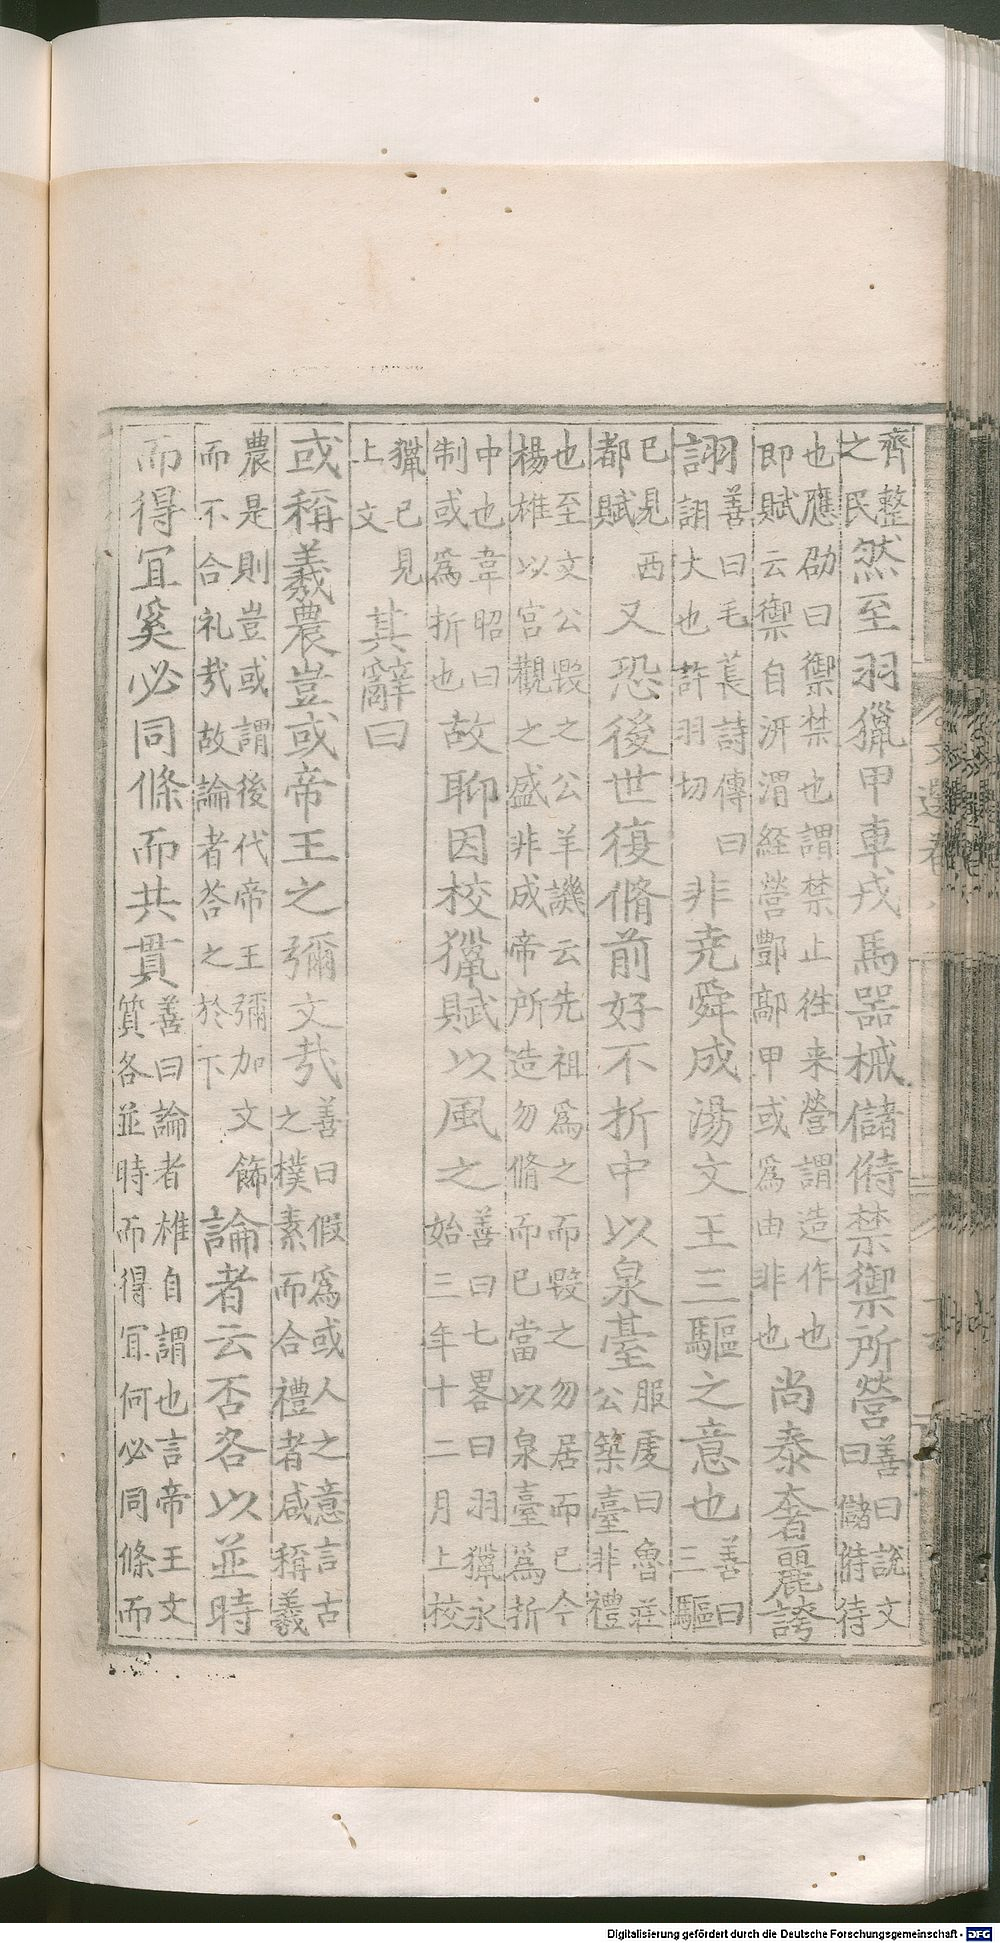 齊整
之民
然至羽獵甲車戎馬器械儲偫禁禦所營
善曰說文
曰儲偫待
也應劭曰禦禁也謂禁止徃来營謂造作也
即賦云禦自汧渭経營酆鄗甲或為由非也
尚泰奢麗誇
詡
善曰毛萇詩傳曰
詡大也許羽切
非尭舜成湯文王三驅之意也
善曰
三驅
已見西
都賦
又恐後世復脩前好不折中以泉臺
服虔曰魯莊
公築臺非禮
也至文公毀之公羊譏云先祖為之而毀之勿居而已今
楊雄以宮觀之盛非成帝所造勿脩而已當以泉臺為折
中也韋昭曰
制或為折也
故聊因校獵賦以風之
善曰七畧曰羽獵永
始三年十二月上校
獵已見
上文
其辭曰
或稱羲農豈或帝王之彌文㢤
善曰假為或人之意言古
之樸素而合禮者咸稱羲
農是則豈或謂後代帝王彌加文飾
而不合礼㢤故論者荅之於下
論者云否各以並時
而得冝奚必同條而共貫
善曰論者雄自謂也言帝王文
質各並時而得冝何必同條而
文選卷
Digitalisierung gefördert durch die Deutsche Forschungsgemeinschaft - DFG